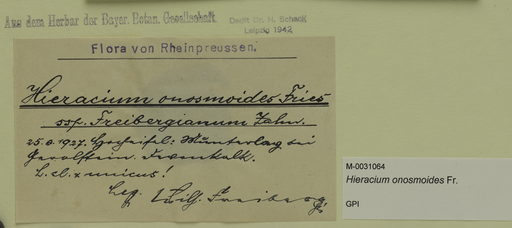 Aus dem Herbar der Bayer. Botan. Gesellschaft.
Dedit Dr. H. Schack
Leipzig 1942
Flora von Rheinpreussen.
Hieracium onosmoides Fries
ssp. Freibergianum Zahn.
25.6.1927. Hocheifel: Munterley bei
Gerolstein. Devonkalk.
L. cl. x unicus!
Leg. Wilh. Freiberg.
M-0031064
Hieracium onosmoides Fr.
GPI